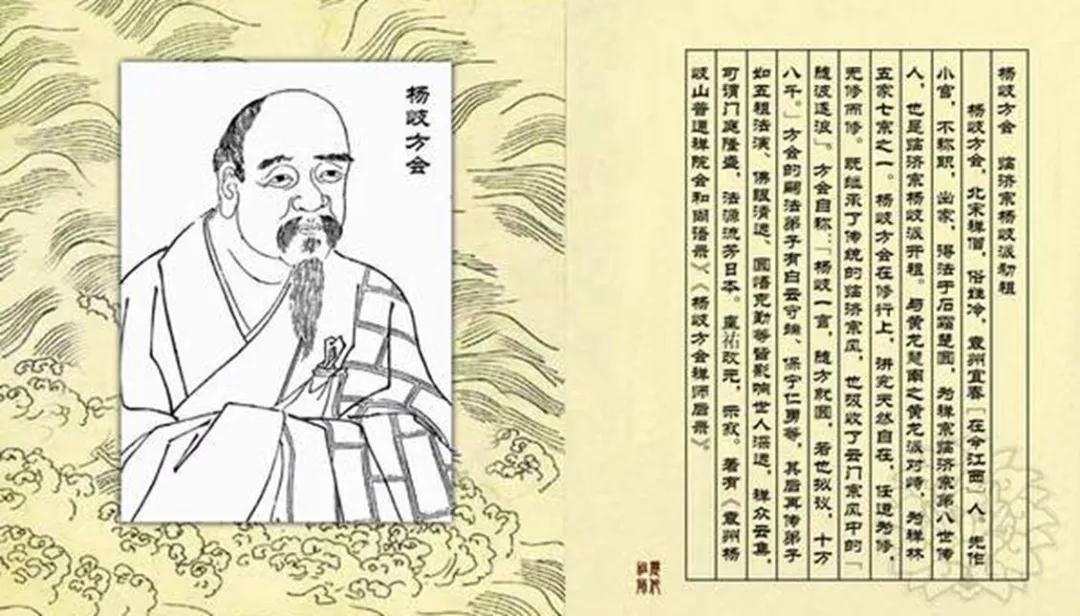 杨岐方会
杨岐方会　临济宗杨岐派初祖
杨岐方会，北宋禅僧，俗姓冷，袁州宜春［在今江西］人。先作
小官，不称职，出家，得法于石霜楚圆，为禅宗临济宗第八世传
人，也是临济宗杨岐派开祖。与黄龙慧南之黄龙派对峙，为禅林
五家七宗之一。杨岐方会在修行上，讲究天然自在，任运为修，
无修而修。既继承了传统的临济宗风，也吸收了云门宗风中的「
随波逐浪」。方会自称：「杨岐一言，随方就圆，若也拟议，十万
八千。」方会的嗣法弟子有白云守端、保宁仁勇等，其后再传弟子
如五祖法演、佛眼清远、圆悟克勤等皆影响世人深远，禅众云集，
可谓门庭隆盛，法源流芳日本。皇祐改元，示寂。著有《袁州杨
岐山普通禅院会和尚语录》《杨岐方会禅师后录》。